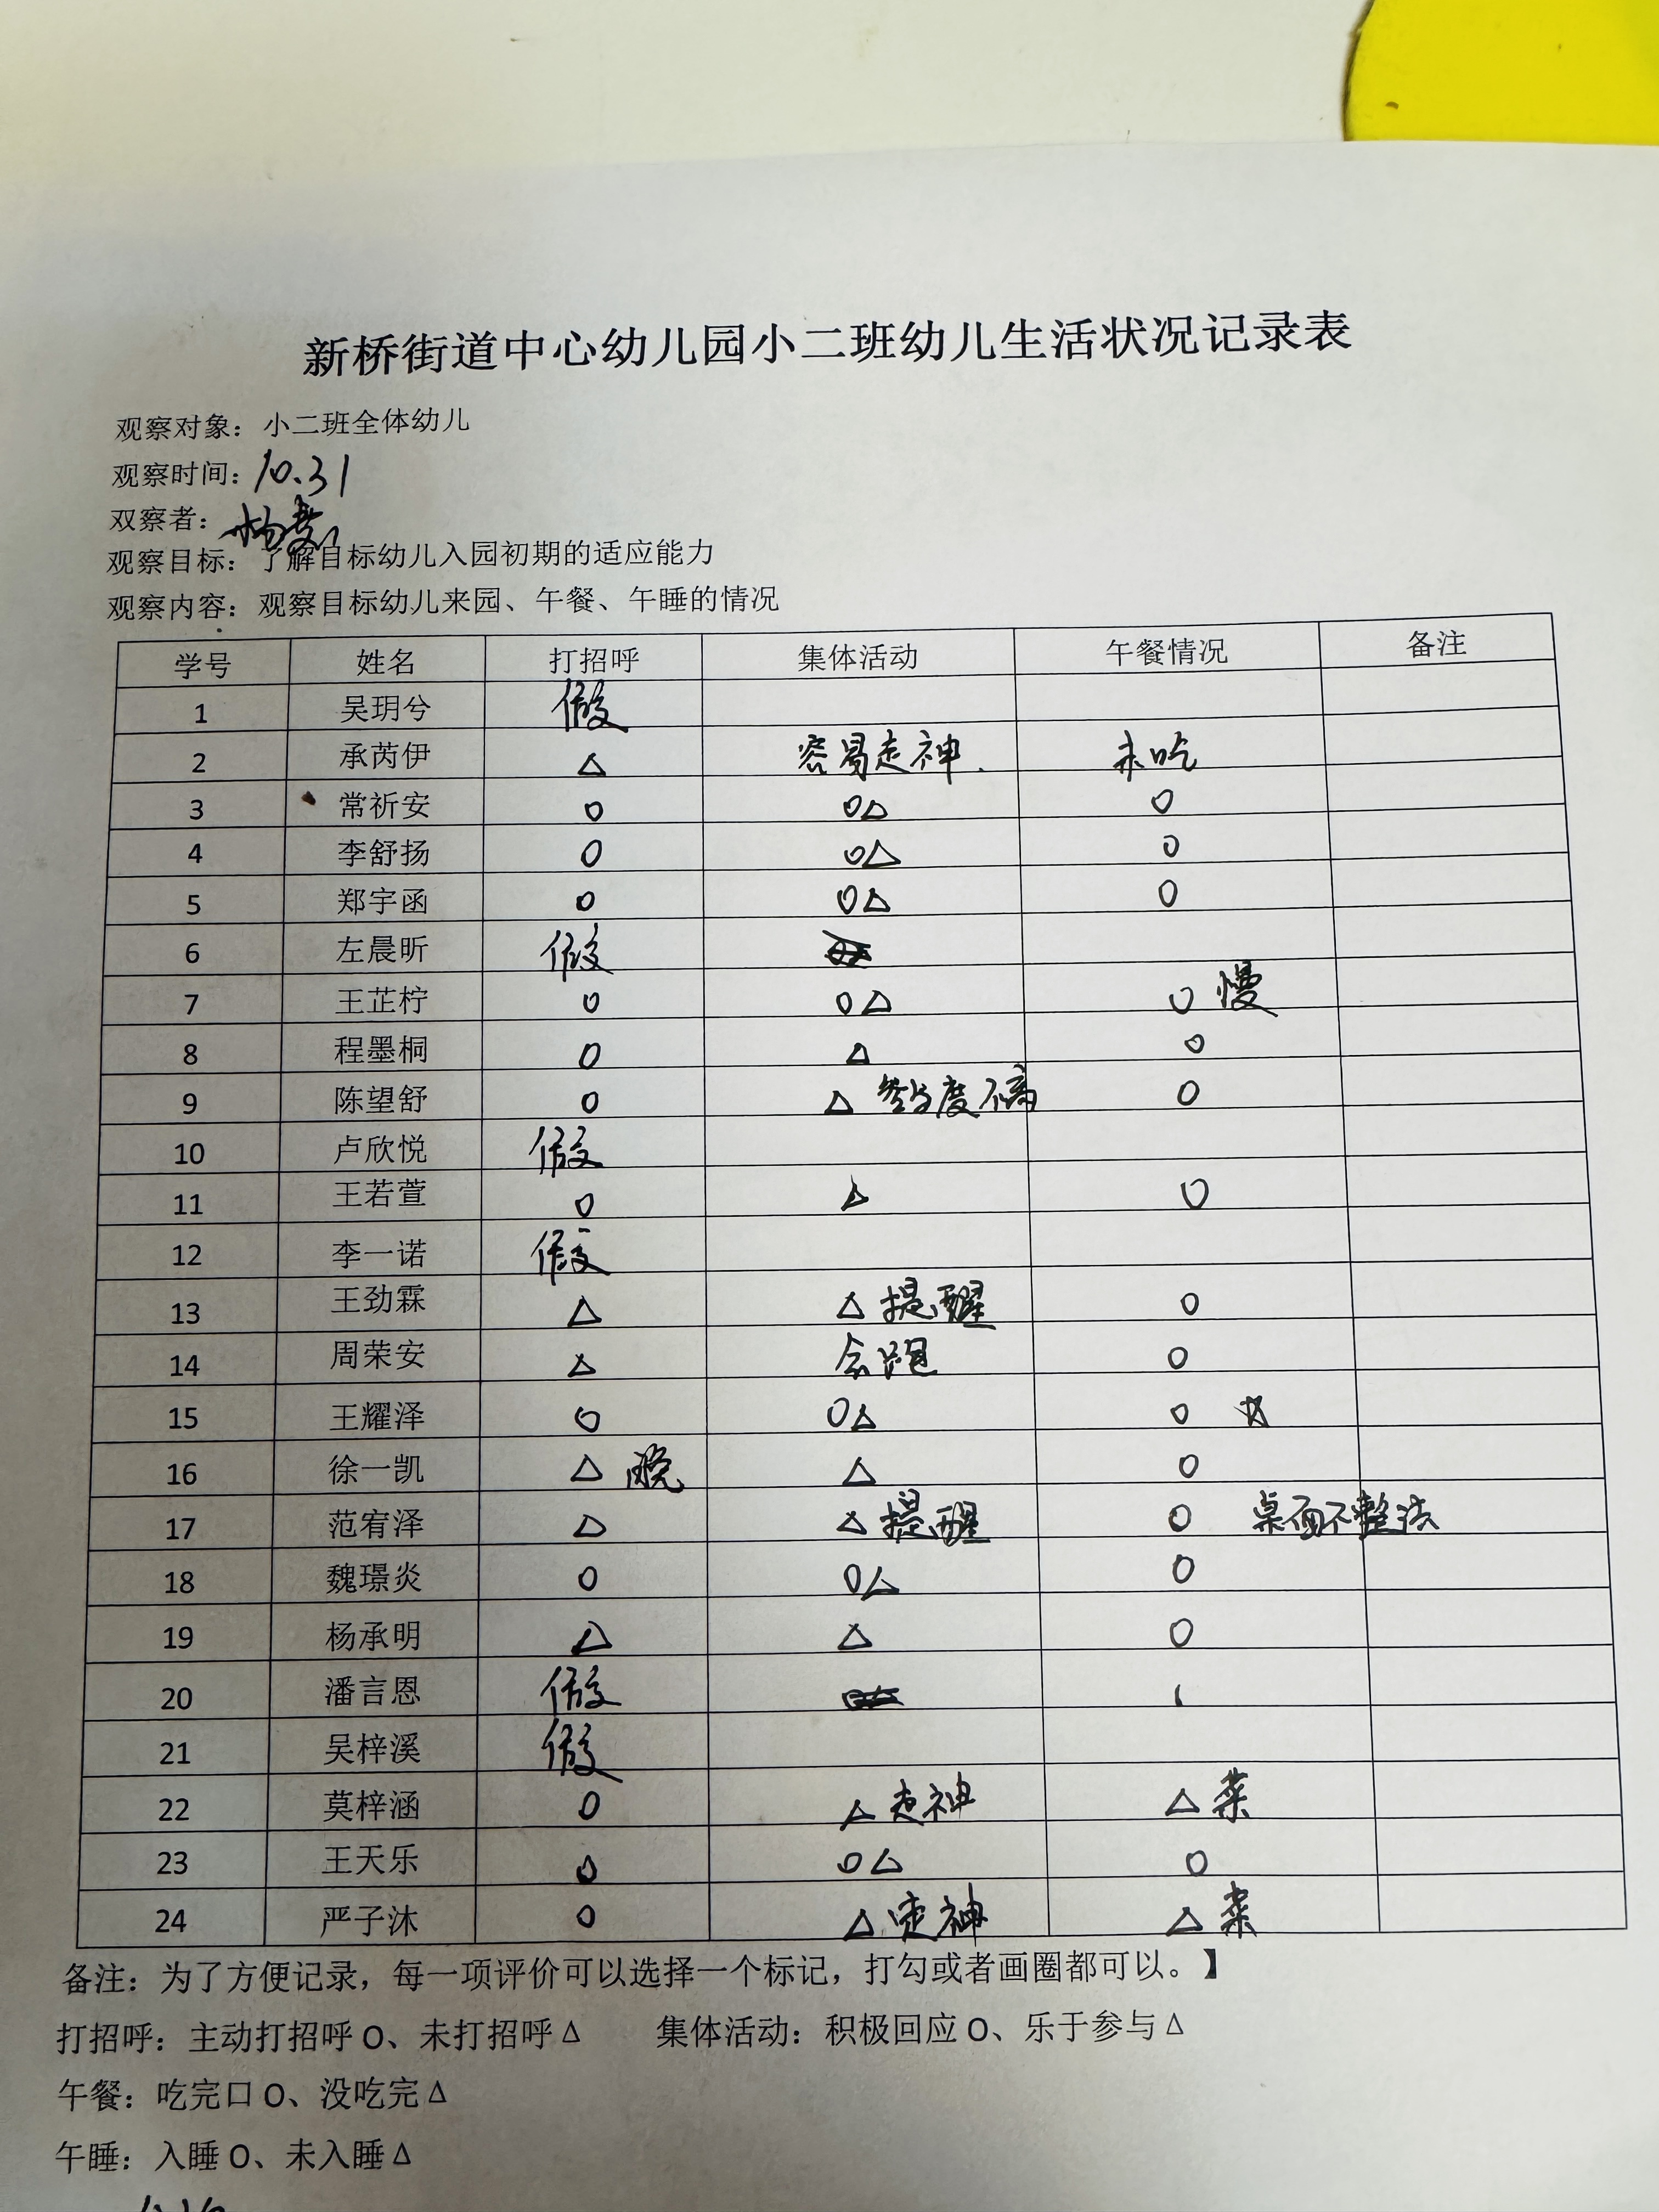 新桥街道中心幼儿园小二班幼儿生活状况记录表
观察对象：小二班全体幼儿
观察时间：10.31
双察者：杨
观察目标：了解目标幼儿入园初期的适应能力
观察内容：观察目标幼儿来园、午餐、午睡的情况
学号 姓名 打招呼 集体活动 午餐情况 备注
1 吴玥兮 假
2 承芮伊 △ 容易走神. 未吃
3 常祈安 O O△ O
4 李舒扬 O O△ O
5 郑宇函 O O△ O
6 左晨昕 假
7 王芷柠 O O△ O 慢
8 程墨桐 O △ O
9 陈望舒 O △ 参与度不高 O
10 卢欣悦 假
11 王若萱 O △ O
12 李一诺 假
13 王劲霖 △ △ 提醒 O
14 周荣安 △ 会跑 O
15 王耀泽 O O△ O
16 徐一凯 △ 晚 △ O
17 范宥泽 △ △ 提醒 O 桌面不整洁
18 魏璟炎 O O△ O
19 杨承明 △ △ O
20 潘言恩 假
21 吴梓溪 假
22 莫梓涵 O △ 走神 △ 菜
23 王天乐 O O△ O
24 严子沐 O △ 走神 △ 菜
备注：为了方便记录，每一项评价可以选择一个标记，打勾或者画圈都可以。】
打招呼：主动打招呼 O、未打招呼 Δ 集体活动：积极回应 O、乐于参与 Δ
午餐：吃完口 O、没吃完 Δ
午睡：入睡 O、未入睡 Δ